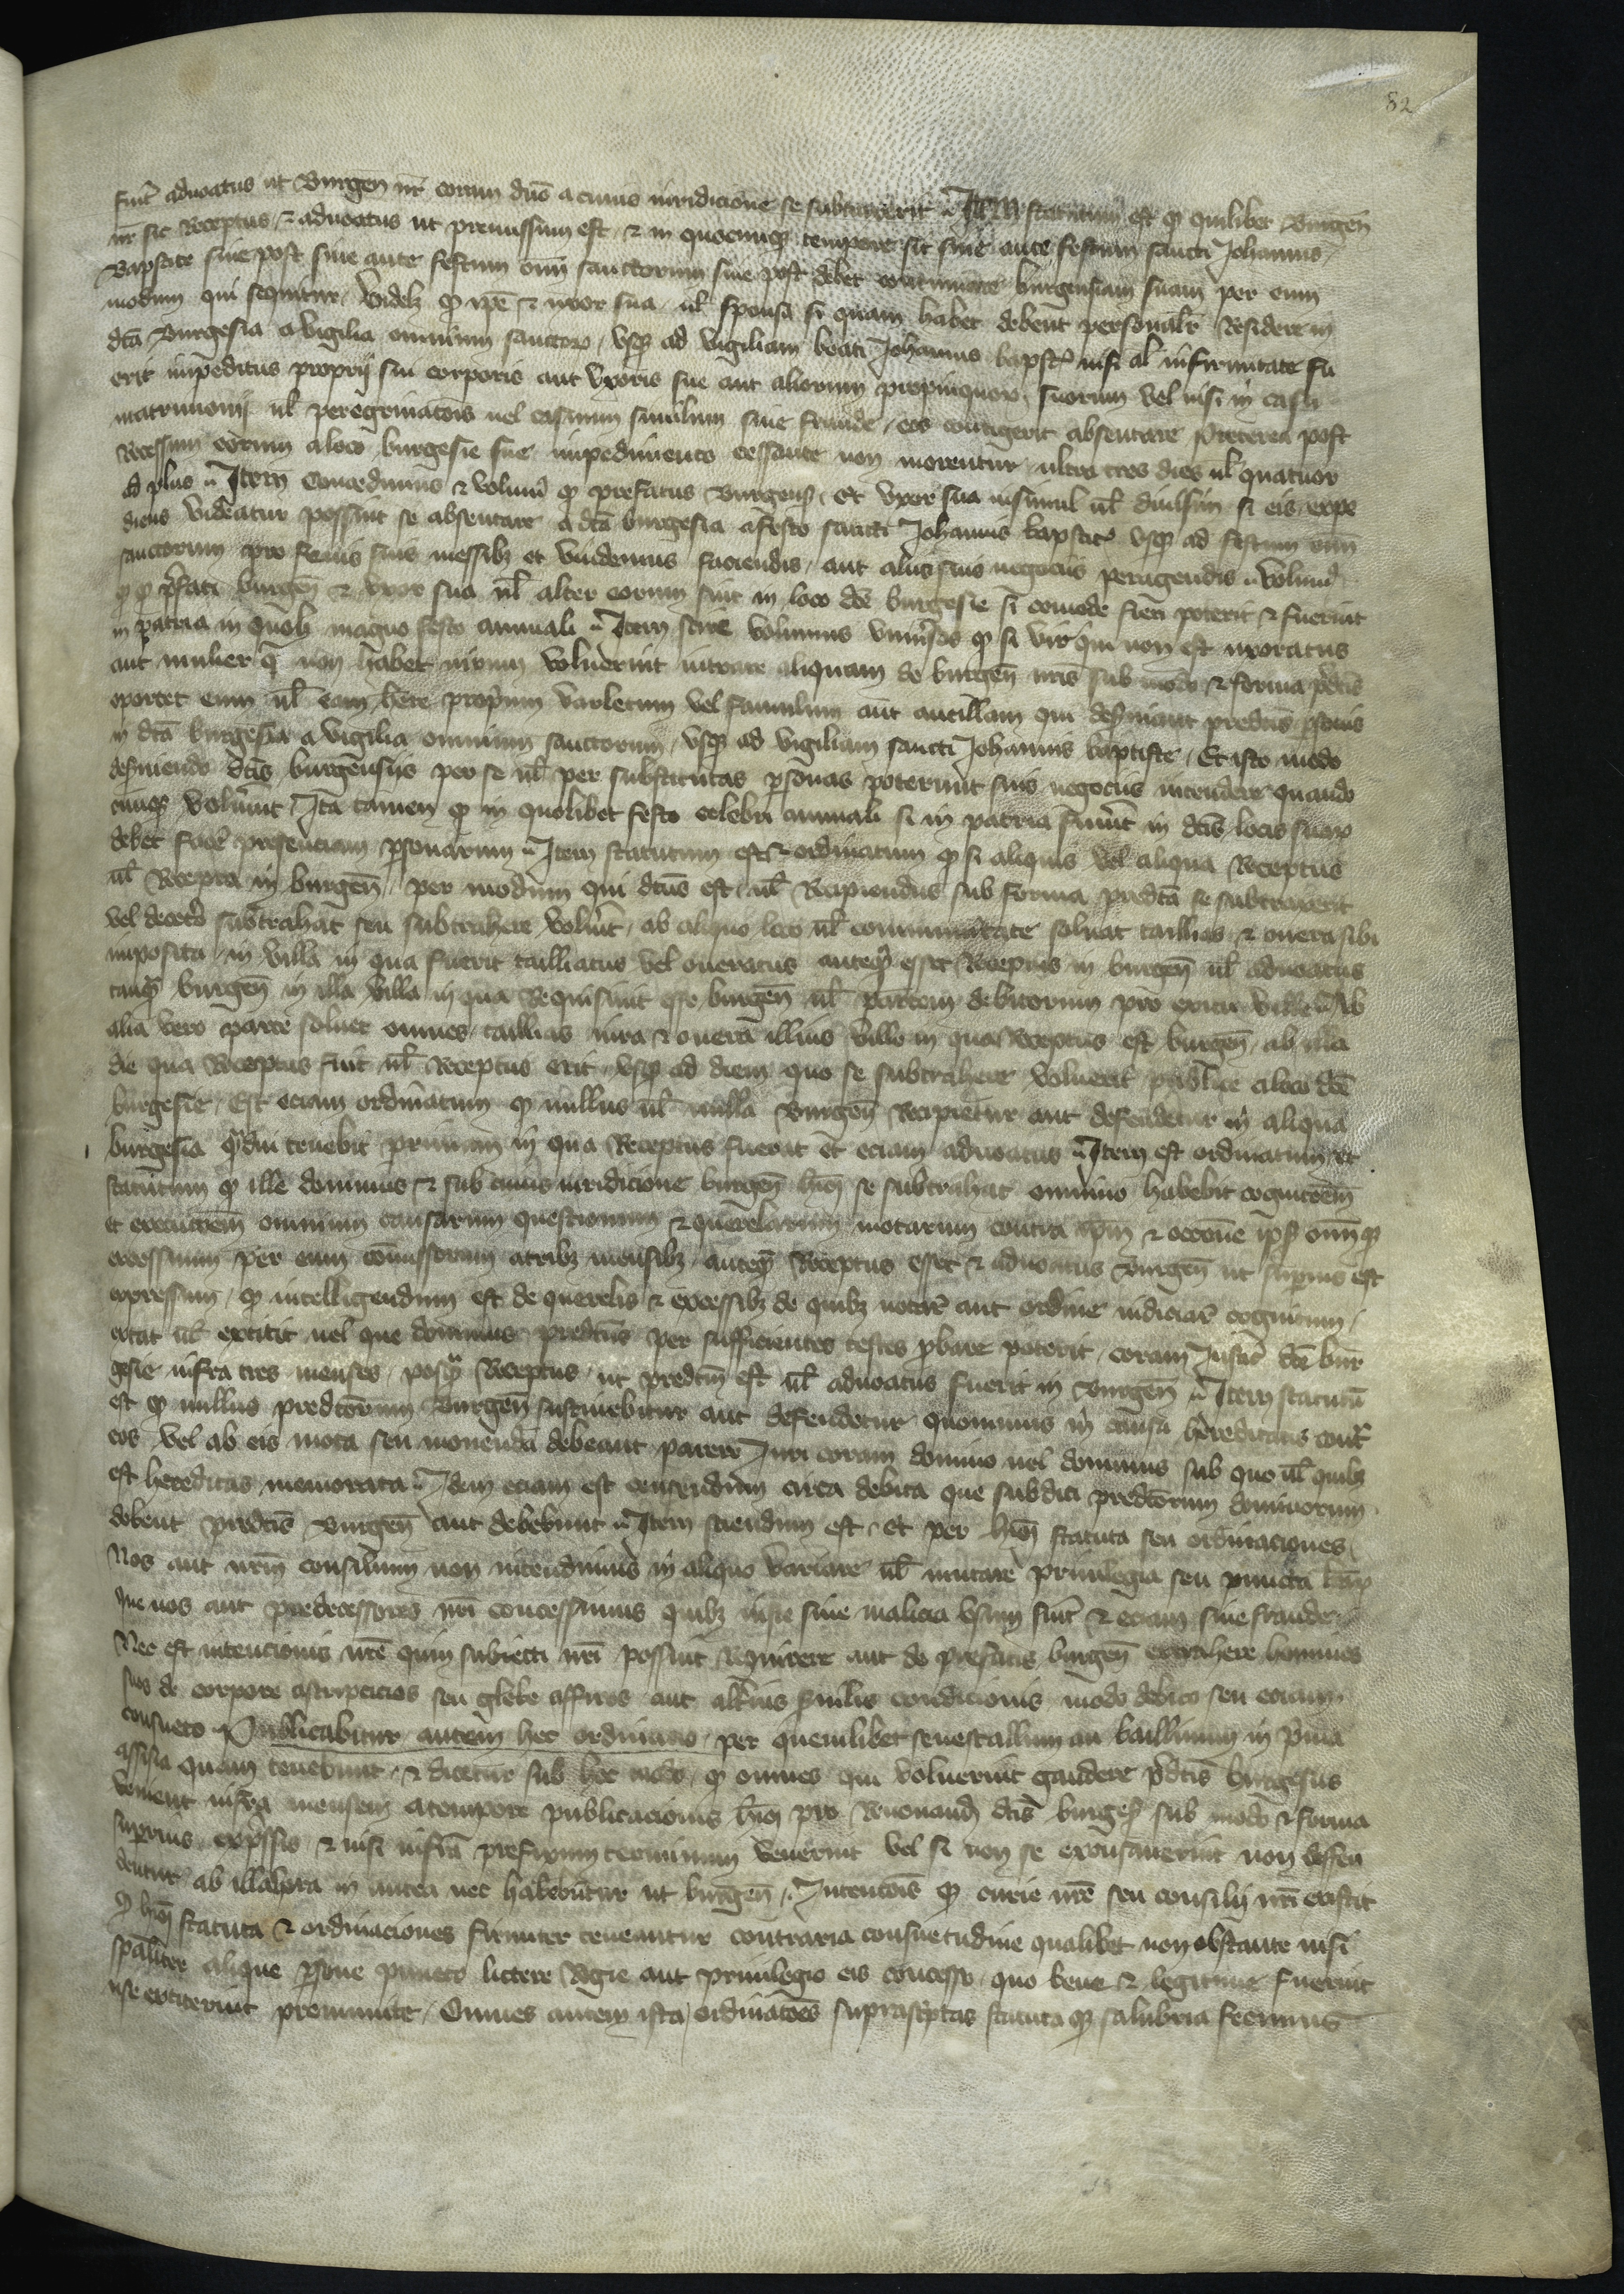 82
fuit aduoatus ut Burgen nr̄ coram dnō a cuius iuridicione se subtraxerit Item statutum est qͥ quilibet Burgen̄
nr̄ sic Receptus, & aduoatus ut premissum est, & in quocumqꝫ tempore sit siue ante festum sancti Johannis
Baptiste siue post siue ante festum om̄ sanctorum siue post debet continuare burgensiam suam per eum
modum qui sequitur, Videlꝫ qͥ ipē & uxor sua ul̄ sponsa si quam habet debent personalr̄ Residere in
dcā Burgesia a vigilia omnium sanctorꝝ, vsqꝫ ad vigiliam beati Johannis bapstē nisi al̄ infirmitate fu
erit impeditus proprij sui corporis aut vxoris sue aut aliorum propinquorꝝ suorum vel nisi in casu
matrimonij ul̄ peregrinatōis uel casuum similium siue fraude, eos contigerit absentare preterea post
Recessum eorum a loco burgesie sue impedimento cessante non morentur ultra tres dies ul̄ quatuor
ad plus Item Concedimus & volumꝰ qͥ prefatus Burgensꝭ et vxor sua insimul ul̄ diuisim si eis expe
diens Videatur possint se absentare a dcā burgesia a festo sancti Johannis baptiste vsqꝫ ad festum om̄
sanctorum pro fenis suis messibꝫ et vindemiis faciendis, aut aliis suis negociis peragendis volumꝰ
qͥ p̄fati burgen̄ & vxor sua ul̄ alter eorum sint in loco dcē burgesie si comode fieri poterit & fuerint
in patria in quolꝫ magno festo annuali Item scire volumus vniūsos qͥ si vir qui non est uxoratus
aut mulier q̄ non habet uirum voluerint intrare aliquam de burgen̄ nr̄is sub modo & forma p̄dcīs
oportet eum ul̄ eam hēre proprium varletum vel famulum aut ancillam qui deseruiant predcīs p̄sonis
in dcā burgesia a vigilia omnium sanctorum, vsqꝫ ad vigiliam sancti Johannis baptiste, Et isto modo
deseruiendo dcīs burgensiis per se ul̄ per substitutas personas poterunt suis negociis intendere quando
cumqꝫ volūint, Ita tamen qͥ in quolibet festo celebri annuali si in patria fuūint in dcīs locis suaꝝ
debet facē presenciam p̄sonarum Item statutum est & ordinatum qͥ si aliquis vel aliqua Receptus
ul̄ Recepta in burgen̄ per modum qui dcūs est ul̄ Recipiendus sub forma predcā se subtraxerit
vel decetō subtrahat seu subtrahere volūit, ab aliquo loco ul̄ communitate soluat tallias & onera sibi
imposita in villa in qua fuerit talliatus vel oneratus anteqͣ esset Receptus in burgen̄ ul̄ aduoatus
tanqͣ burgen̄ in illa villa in qua Requisiuit esse burgen̄ ul̄ partem debitorum pro exitu ville Ab
alia vero parte soluet omnes tallias iura & onera illius ville in qua Receptus est burgen̄ ab illa
die qua Receptus fuit ul̄ Receptus erit vsqꝫ ad diem quo se subtrahere voluerit publice a loco dcē
burgesie, Est eciam ordinatum qͥ nullus ul̄ nulla Burgen̄ Recipietur aut defendetur in aliqua
burgesia qͣdiu tenebit primam in qua Receptus fuerat et eciam aduoatus Item est ordinatum et
statutum qͥ ille dominus & sub cuius iuridicione burgen̄ hmōi se subtrahat omnino habebit cognitōem
et executōem omnium causarum questionum & querelarum motarum contra ip̄m & occōne ipsꝰ omniumqꝫ
excessuum per eum cōmissorum a tribꝫ mensibꝫ anteqͣ Receptus esset & aduoatus Burgen̄ ut superius est
expressum, qͥ intelligendum est de querelis & excessibꝫ de quibꝫ notarē aut ordine iudiciarē cognitum
extat ul̄ extitit uel que dominus predcūs per sufficientes testes probare poterit, coram Justicꝭ dcē bur
gesie infra tres menses, postqͣ Receptus, ut predcm̄ est ul̄ aduoatus fuerit in Burgen̄ Item statutū
est qͥ nullus predcōrum Burgen̄ sustinebitur aut defendetur quominus in causa hereditatis contͣ
eos vel ab eis mota seu mouenda debeant parere Juri coram domino uel dominis sub quo ul̄ quibꝫ
est hereditas memorata Idem eciam est censendum circa debita que subditi predcōrum dominorum
debent predcīs Burgen̄ aut debebunt Item sciendum est, et per hmōi statuta seu ordinaciones
Nos aut nr̄m consilium non intendimus in aliquo Variare ul̄ mutare priuilegia seu puncta cartaꝝ
que nos aut predecessores nr̄i concessimus quibꝫ iuste sine malicia vsum fuit & eciam sine fraude
Nec est intencionis nr̄e quin subiecti nr̄i possint Requirere aut de prefatis burgen̄ extrahere homines
suos de corpore ascripticios seu glebe affixos aut alteriꝰ similis condicionis modo debito seu eciam
consueto Publicabitur autem hec ordinacio per quemlibet senescallum au balliuum in p̄ma
assisia quam tenebunt, & dicetur sub hoc modo qͥ omnes qui voluerint gaudere p̄dcīs burgesiis
veniant infra mensem a tempore publicacionis hmōi pro Renouandꝭ dcīs burgesꝭ sub modo & forma
superius exp̄ssis & nisi infra prefixum terminum venerint vel si non se excusauerint non deffen
dentur ab illa hora in antea nec habebuntur ut burgen̄ Intentōis qͥ curie nr̄e seu consilij nr̄i existit
qͥ hmōi statuta & ordinaciones firmiter teneantur contraria consuetudine qualibet non obstante nisi
sp̄aliter alique p̄sone puncto littere Regie aut priuilegio eis concesso, quo bene & legitime fuerint
use extiterint premunite, Omnes autem ista ordinatōes suprascp̄tas statuta qͥ salubria fecimus